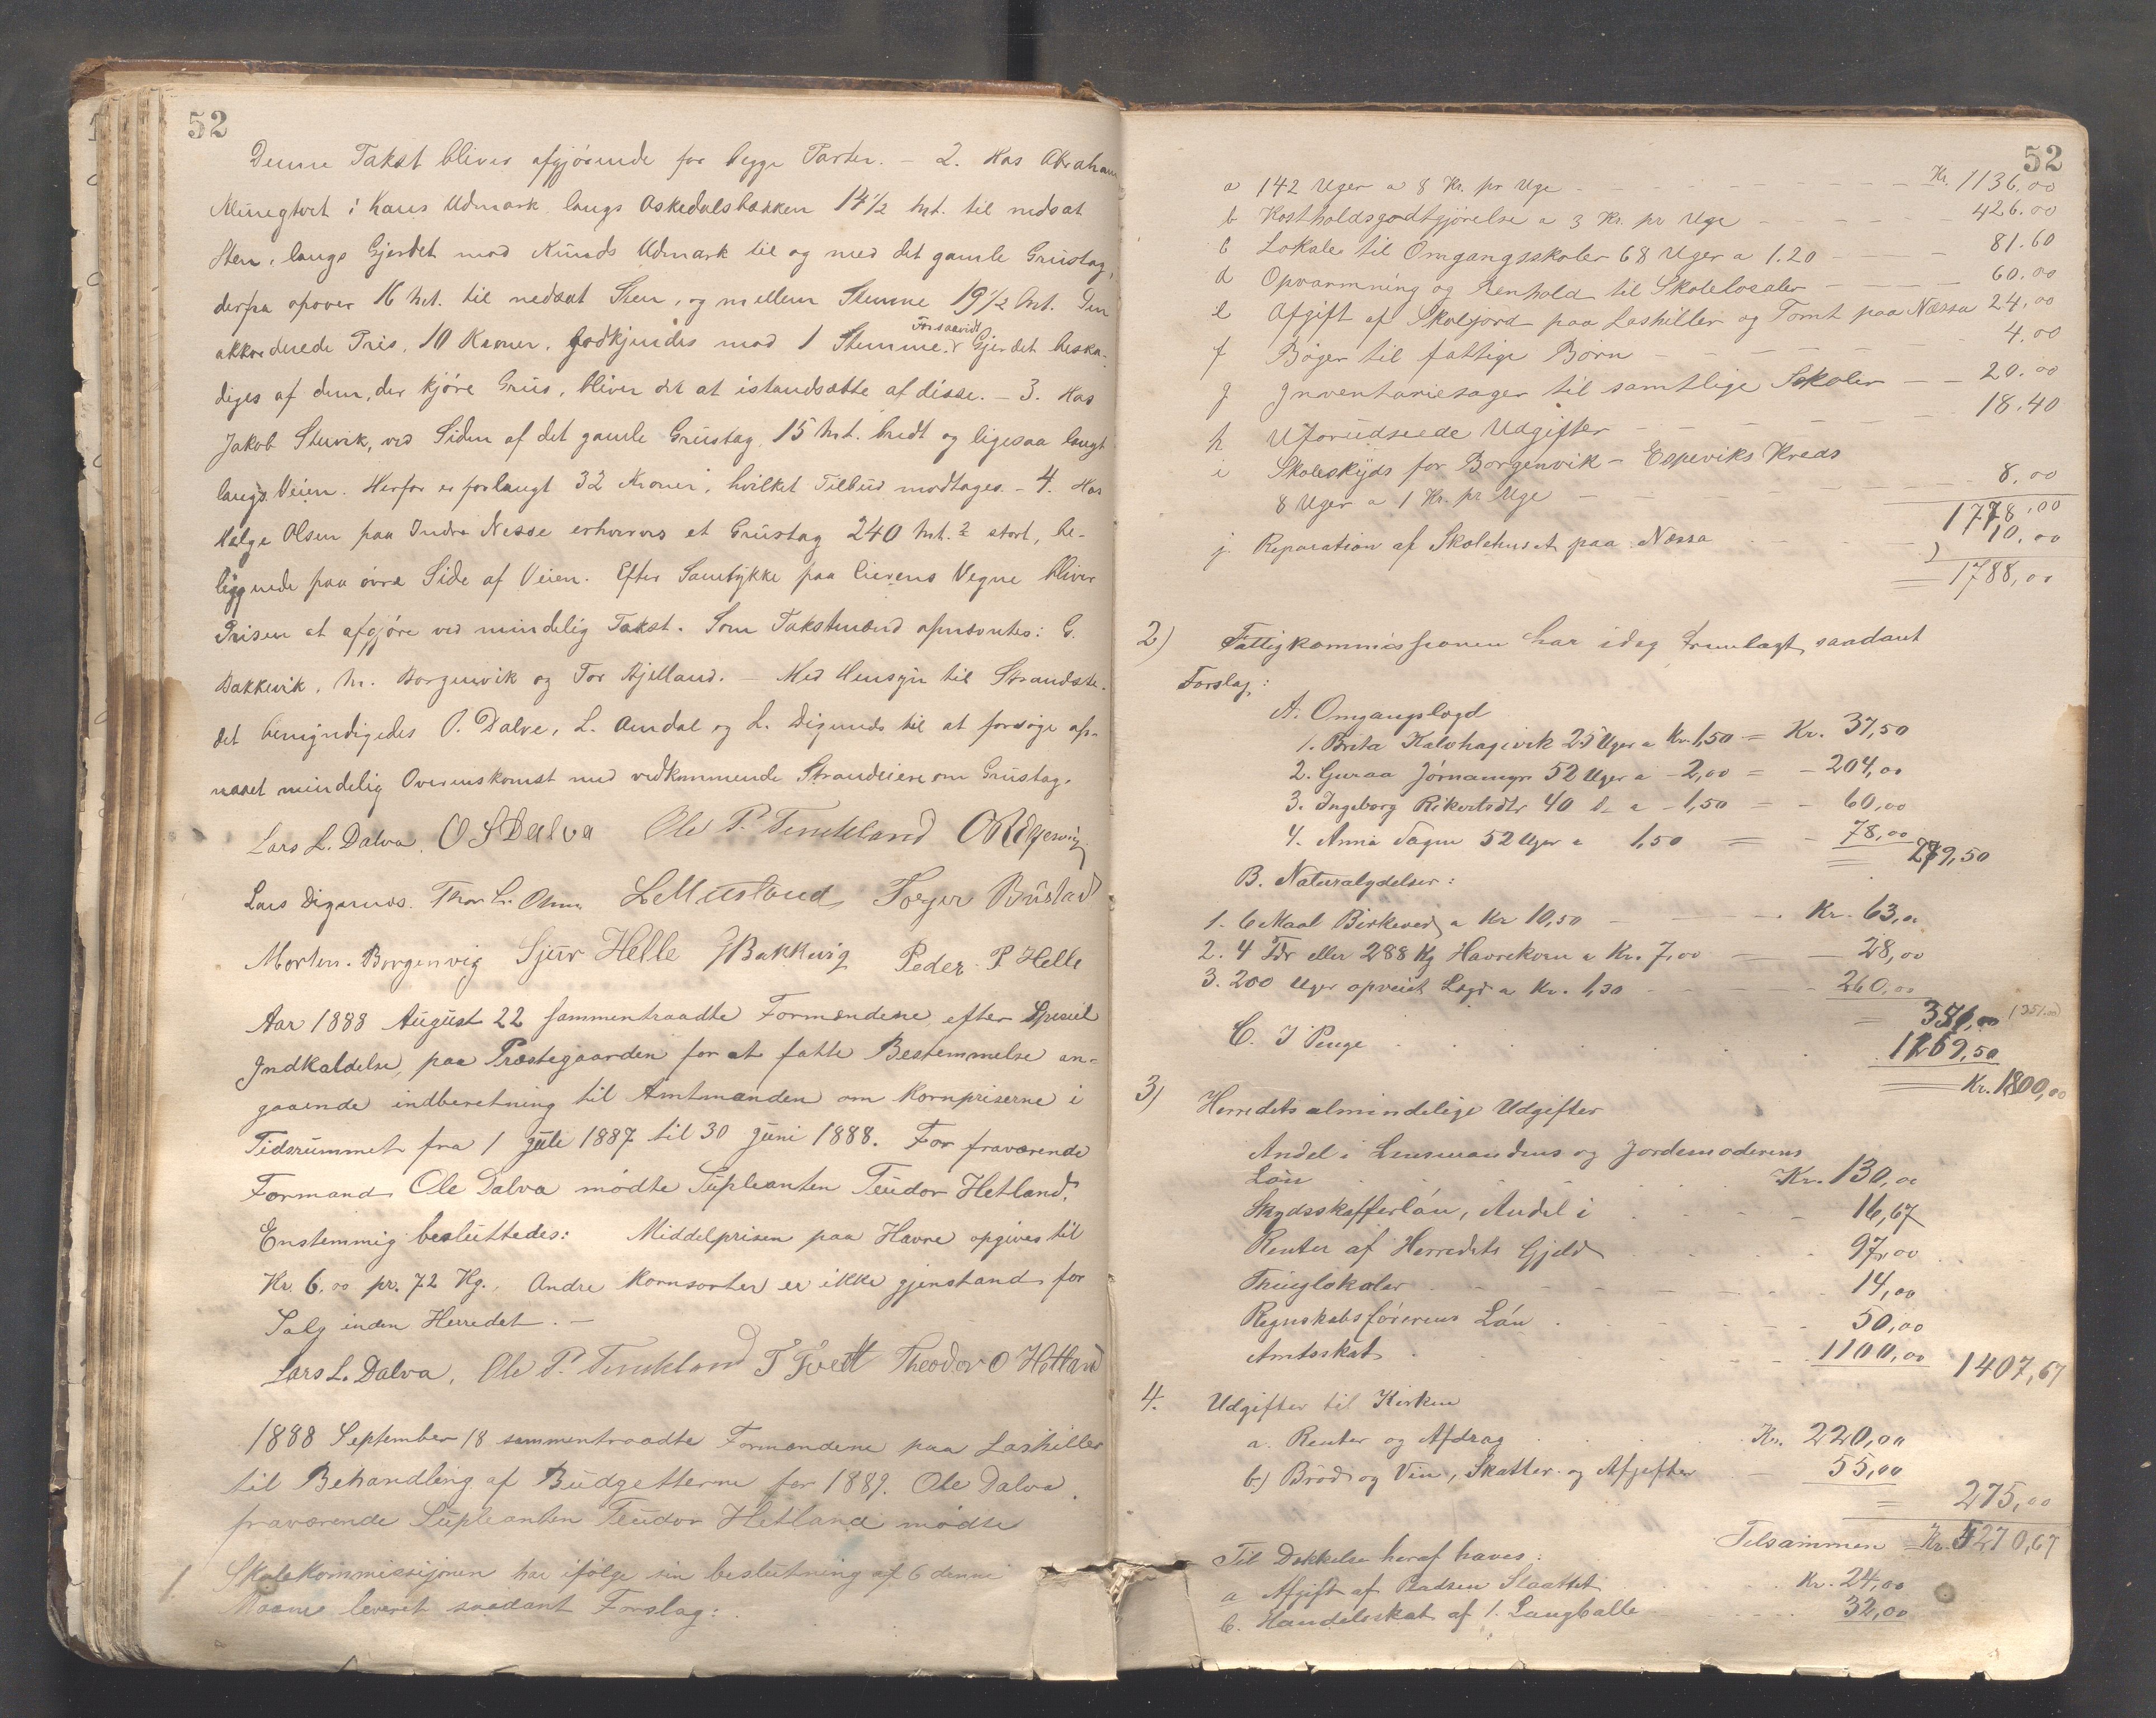 52
Denne Takst bliver afgjørende for begge Parter. - 2. Hos Abraham
i hans Udmark langs Askedalsbækken 14 1/2 mt. til nedsat
Sten, langs Gjerdet mod Knuds Udmark til og med det gamle Grustag,
derfra opover 16 mt. til nedsat Sten, og mellem Stenene 19 1/2 mt. Den
akkorderede Pris, 10 Kroner, godkjendes mod 1 Stemme. Forsaavidt Gjerdet beska-
diges af dem, der kjøre Grus, bliver det at istandsætte af disse. - 3. Hos
Jakob Stuvik, ved Siden af det gamle Grustag, 15 mt. bredt og ligesaa langt
langs Veien. Herfor er forlangt 32 Kroner, hvilket Tilbud modtages. - 4. Hos
Helge Olsen paa Indre Nesse erhverves et Grustag 240 mt.² stort, be-
liggende paa øvre Side af Veien. Efter Samtykke paa Eierens Vegne bliver
Prisen at afgjøre ved mindelig Takst. Som Takstmænd opnævntes: G.
Bakkevik, M. Borgenvik og Tor Hjelland. - Med Hensyn til Strandste-
det bemyndigedes O. Dalve, L. Omdal og L. Digernes til at forsøge op-
naaet mindelig Overenskomst med vedkommende Strandeiere om Grustag.
Lars L. Dalva. O S Dalva Ole P. Tinkland
Lars Digernes. Thor L. L Mustand Torger Bustad
Morten. Borgenvig Sjur Helle J Bakkevig Peder P Helle
Aar 1888 August 22 sammentraadte Formændene efter Speciel
Indkaldelse, paa Præstegaarden for at fatte Bestemmelse an-
gaaende indberetning til Amtmanden om Kornpriserne i
Tidsrummet fra 1 Juli 1887 til 30 Juni 1888. For fraværende
Formand Ole Dalva mødte Supleanten Teudor Hetland.
Enstemmig besluttedes: Middelprisen paa Havre opgives til
Kr. 6,00 pr. 72 Kg. Andre Kornsorter er ikke gjenstand for
Salg inden Herredet. -
Lars L. Dalva, Ole P. Tinkland T Tvedt Theodor O Hetland
1888 September 18 sammentraadte Formændene paa Lashiller
til Behandling af Budgetterne for 1889. Ole Dalva
fraværende Supleanten Teudor Hetland mødte
1. Skolekommissjonen har ifølge sin beslutning af 6 denne
Maane leveret saadant Forslag:
52
a 142 Uger a 8 Kr. pr Uge - Kr. 1136,00
b Kostholdsgodtgjørelse a 3 Kr. pr Uge - 426.00
c Lokaler til Omgangsskoler 68 Uger a 1.20 - 81.60
d Opvarmning og Renhold til Skolelocaler - 60.00
e Afgift af Skolejord paa Lashiller og Tomt paa Næssa 24,00
f Bøger til fattige Børn - 4.00
g Inventariesager til samtlige Skoler - 20.00
h Uforudseede Udgifter - 18.40
i Skoleskyds for Borgenvik - Espeviks Kreds
8 Uger a 1 Kr. pr Uge - 8,00
1778,00
j. Reparation af Skolehuset paa Næssa 10,00
= 1788,00
2) Fattigkommissionen har idag fremlagt saadant
Forslag:
A. Omgangslegd
1. Brita Kalvhagevik 25 Uger a Kr. 1,50 = Kr. 37,50
2. Guraa Jørnamyr 52 Uger a - 2,00 = - 204,00
3. Ingeborg Rikertsdtr 40 D_ a - 1,50 = - 60,00
4. Anna 52 Uger a 1,50 = - 78,00
= 279,50
B. Naturalydelser:
1. 6 Maal Birkeved a Kr 10,50 - Kr. 63,00
2. 4 Tdr eller 288 Kg Havrekorn a Kr. 7,00 - 28,00
3. 200 Uger Legd a Kr. 1,30 - 260,00
= 351,00 (351.00)
C. I Penge 1169,50
= Kr. 1800,00
3) Herredets almindelige Udgifter
Andel i Lensmandens og Jordemoderens
Løn Kr. 130,00
Skydsskafferløn, Andel i - 16,67
Renter af Herredets Gjeld 97,00
Thinglokaler - 14,00
Regnskabsførerens Løn 50,00
Amtsskat - 1100,00 1407,67
4. Udgifter til Kirken
a. Renter og Afdrag Kr. 220,00
b) Brød og Vin, Skatter og Afgifter - 55,00
= 275,00
Tilsammen Kr. 5270,67
Til Dækkelse heraf haves:
a Afgift af Slaattet Kr. 24,00
b. Handelsskat af 1. Langballe 32,00